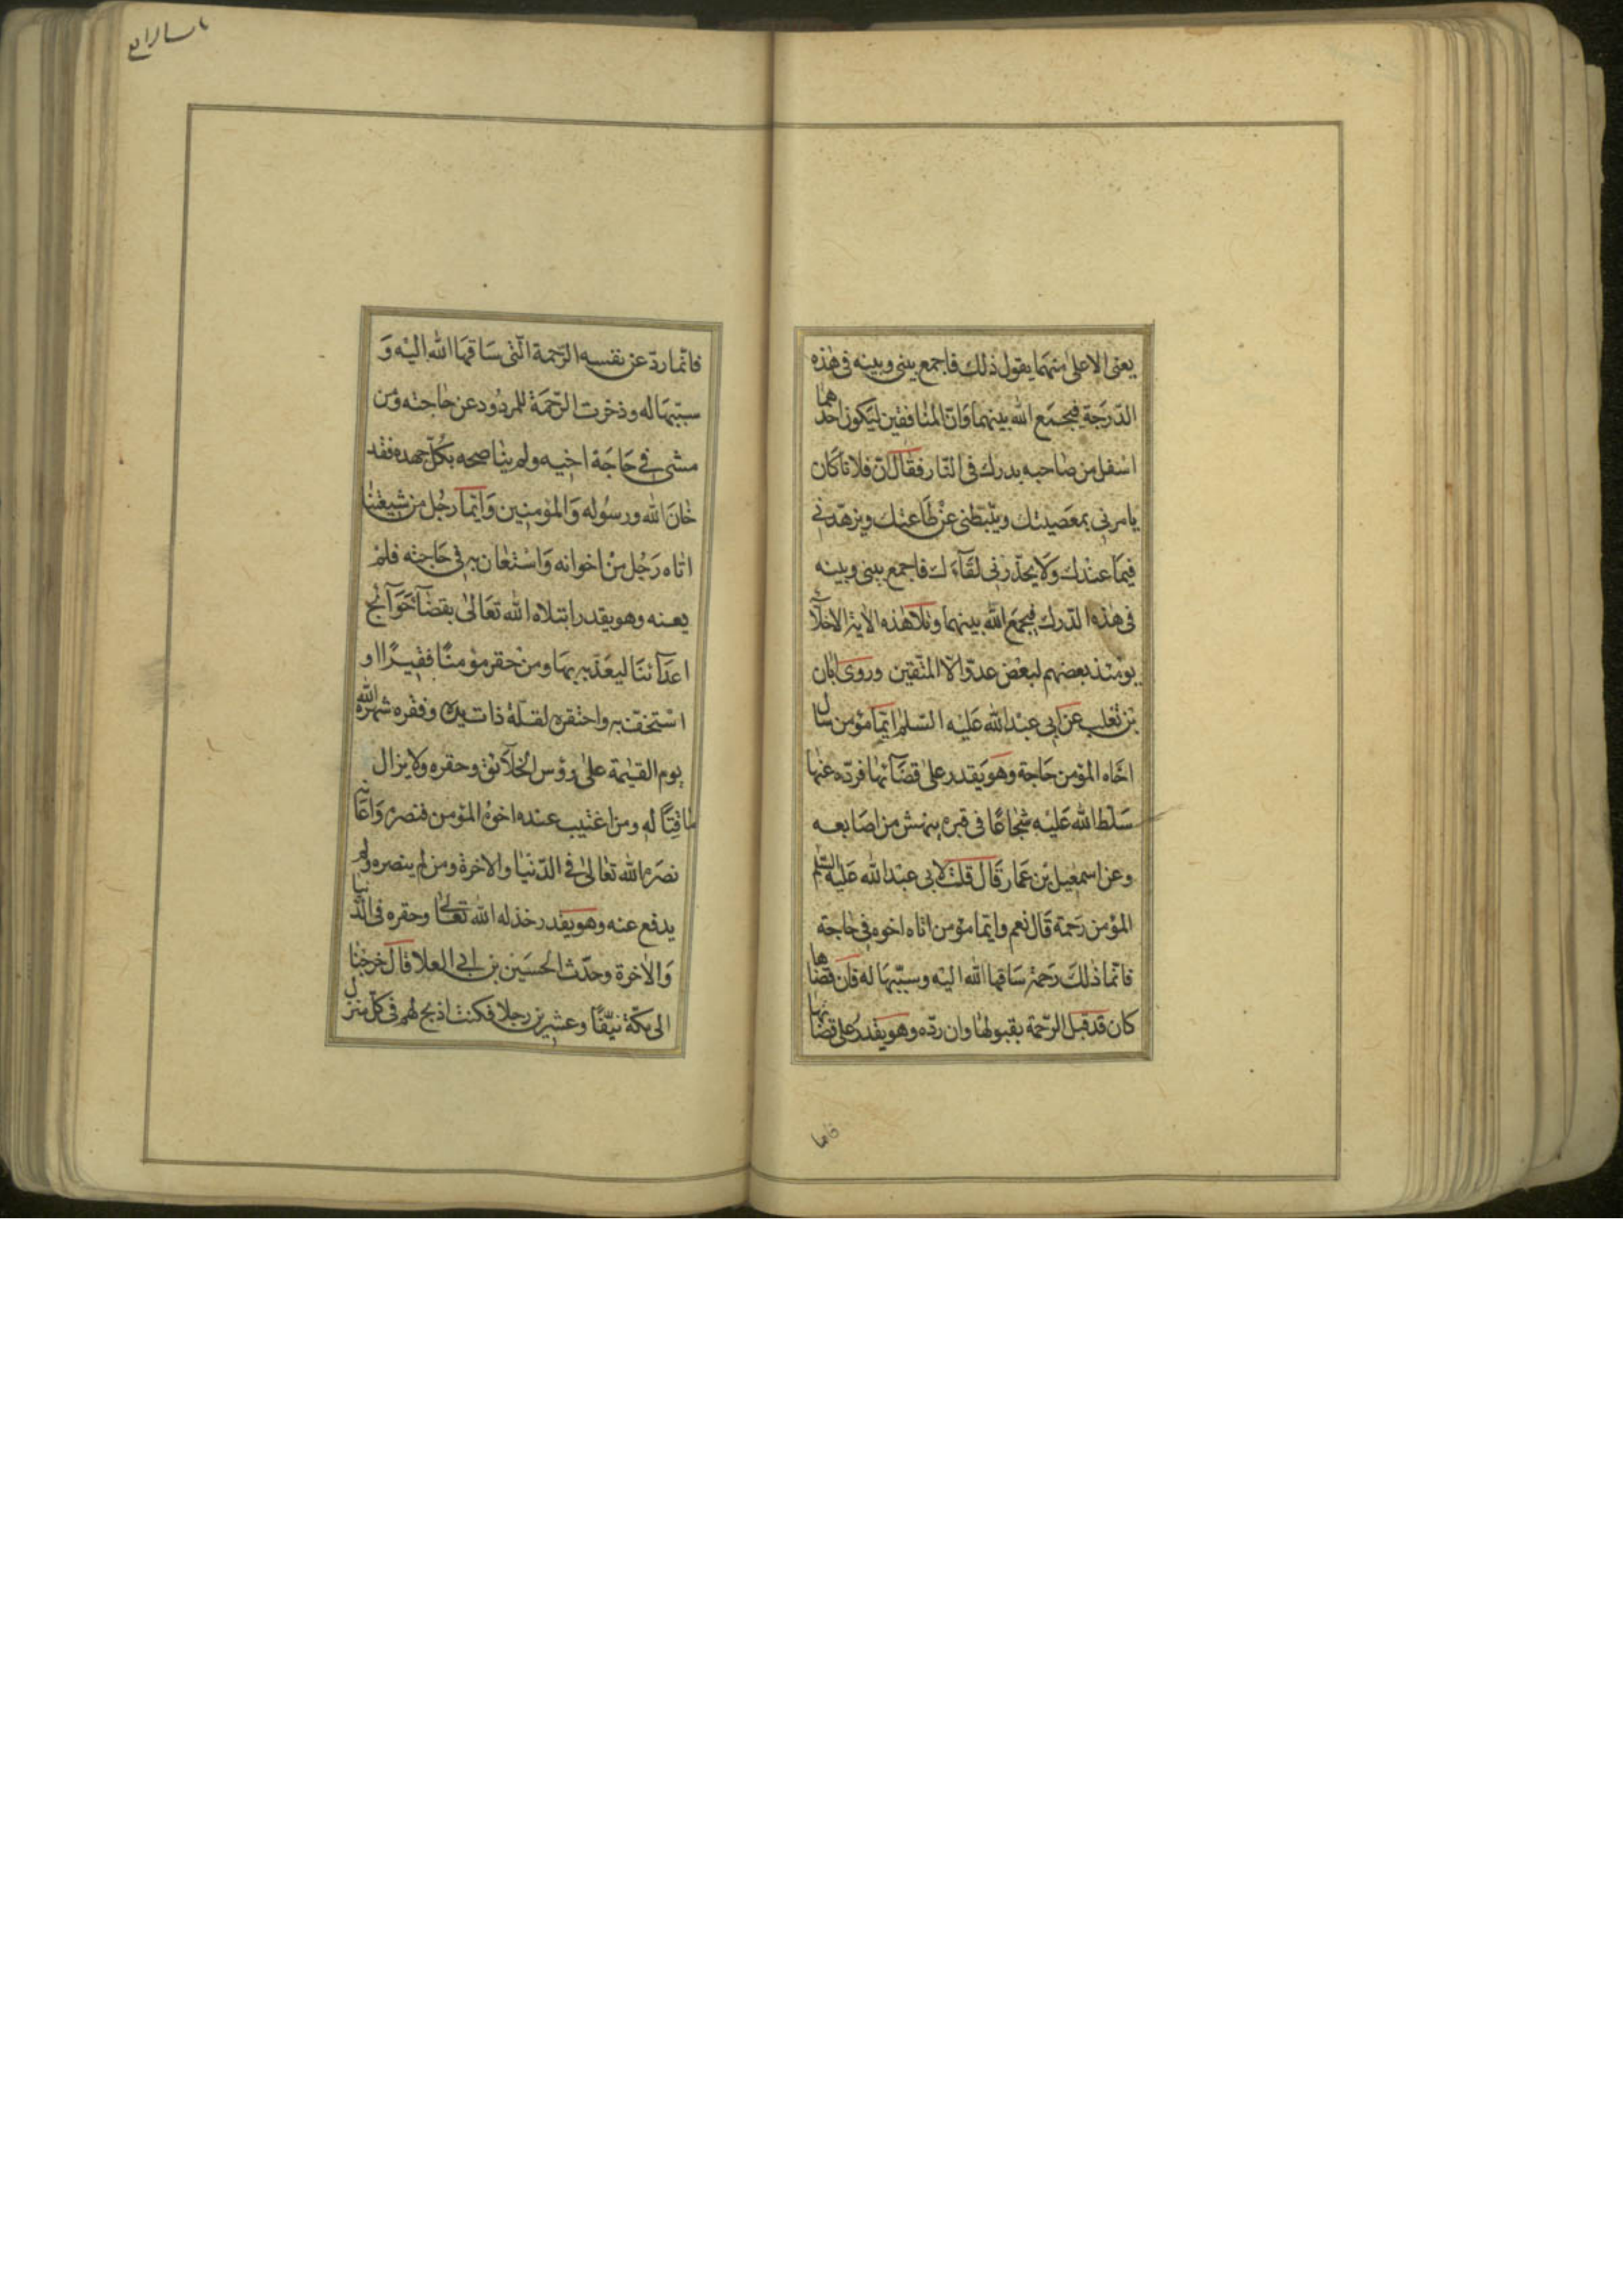 يعنى الاعلى منهما يقول ذلك فاجمع بينى وبينه فى هذه
الدّرجة فيجمع الله بينهما وانّ المنافقين ليكون احدهما
اسفل من صاحبه بدرك فى النّار فقال انّ فلانا كان
يامرنى بمعصيتك ويثبطنى عن طاعتك ويزهّدنى
فيما عندك ولا يحذّرنى لقآءك فاجمع بينى وبينه
فى هذا الدّرك فيجمع الله بينهما وتلا هذه الاية الاخلآء
يومئذ بعضهم لبعض عدوّ الّا المتّقين وروى ابان
بن تغلب عن ابى عبد الله عليه السّلم ايّما مؤمن سال
اخاه المؤمن حاجة وهو يقدر على قضآئها فردّه عنها
سلّط الله عليه شجاعًا فى قبره ينهش من اصابعه
وعن اسمعيل بن عمار قال قلت لابى عبد الله عليه السّلم
المؤمن رحمة قال نعم وايّما مؤمن اتاه اخوه فى حاجة
فانّما ذلك رحمة ساقها الله اليه وسبّبها له فان قضاها
كان قد قبل الرّحمة بقبولها وان ردّه وهو يقدر على قضائها
فانما
باب الرابع
فانّما ردّ عن نفسه الرّحمة الّتى ساقها الله اليه و
سبّبها له وذخرت الرّحمة للمردود عن حاجته ومن
مشى فى حاجة اخيه ولم يناصحه بكلّ جهده فقد
خان الله ورسوله والمؤمنين وايّما رجل من شيعتنا
اتاه رجل من اخوانه واستعان به فى حاجته فلم
يعنه وهو يقدر ابتلاه الله تعالى بقضآء حوآئج
اعدآئنا ليعذّبه بها ومن حقر مؤمنًا فقيرًا او
استخفّ به واحتقره لقلّة ذات يده وفقره شهره الله
يوم القيمة على رؤس الخلآئق وحقره ولا يزال
ماقتًا له ومن اغتيب عنده اخوه المؤمن فنصره واعانه
نصره الله تعالى فى الدّنيا والاخرة ومن لم ينصره ولم
يدفع عنه وهو يقدر خذله الله تعالى وحقره فى الدّنيا
والاخرة وحدّث الحسين بن ابى العلا قال خرجنا
الى مكّة نيّفًا وعشرين رجلا فكنت اذبح لهم فى كلّ منزل